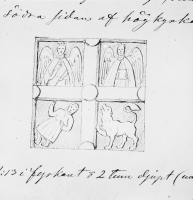 södra sidan af högkyrka
:13 i fyrkant & 2 tum djupt (na